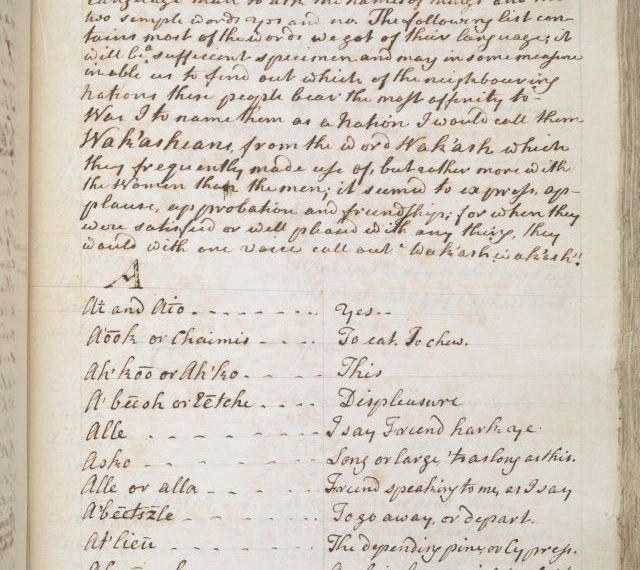 Language than to ask the names of things and the
two simple words yes and no. The following list con-
tains most of the words we got of their language, it
will be a sufficient specimen and may in some measure
inable us to find out which of the neighbouring
Nations these people bear the most affinity to-
Was I to name them as a Nation I would call them
Wak'ashians, from the word Wak'ash which
they frequently made use of, but rather more with
the Women than the men; it seemed to express ap-
plause, approbation and friendship; for when they
were satisfied or well pleased with any thing, they
would with one voice call out Wak'ash, wak'ash!
A
Ai and Aio - - - - - - - Yes--
A'ook or Chaimis - - - - To eat. To chew.
Ah'koo or Ah'ko - - - - This
A'beesh or Eetche - - - - Displeasure
Alle - - - - - - I say Friend hark ye.
Asko - - - - - - Long or large, 'tis as long as this.
Alle or alla - - - - - Friend speaking to me, as I say
A'beetszle - - - - - To go away, or depart.
At'lieu - - - - - The depending pine, or Cypress.